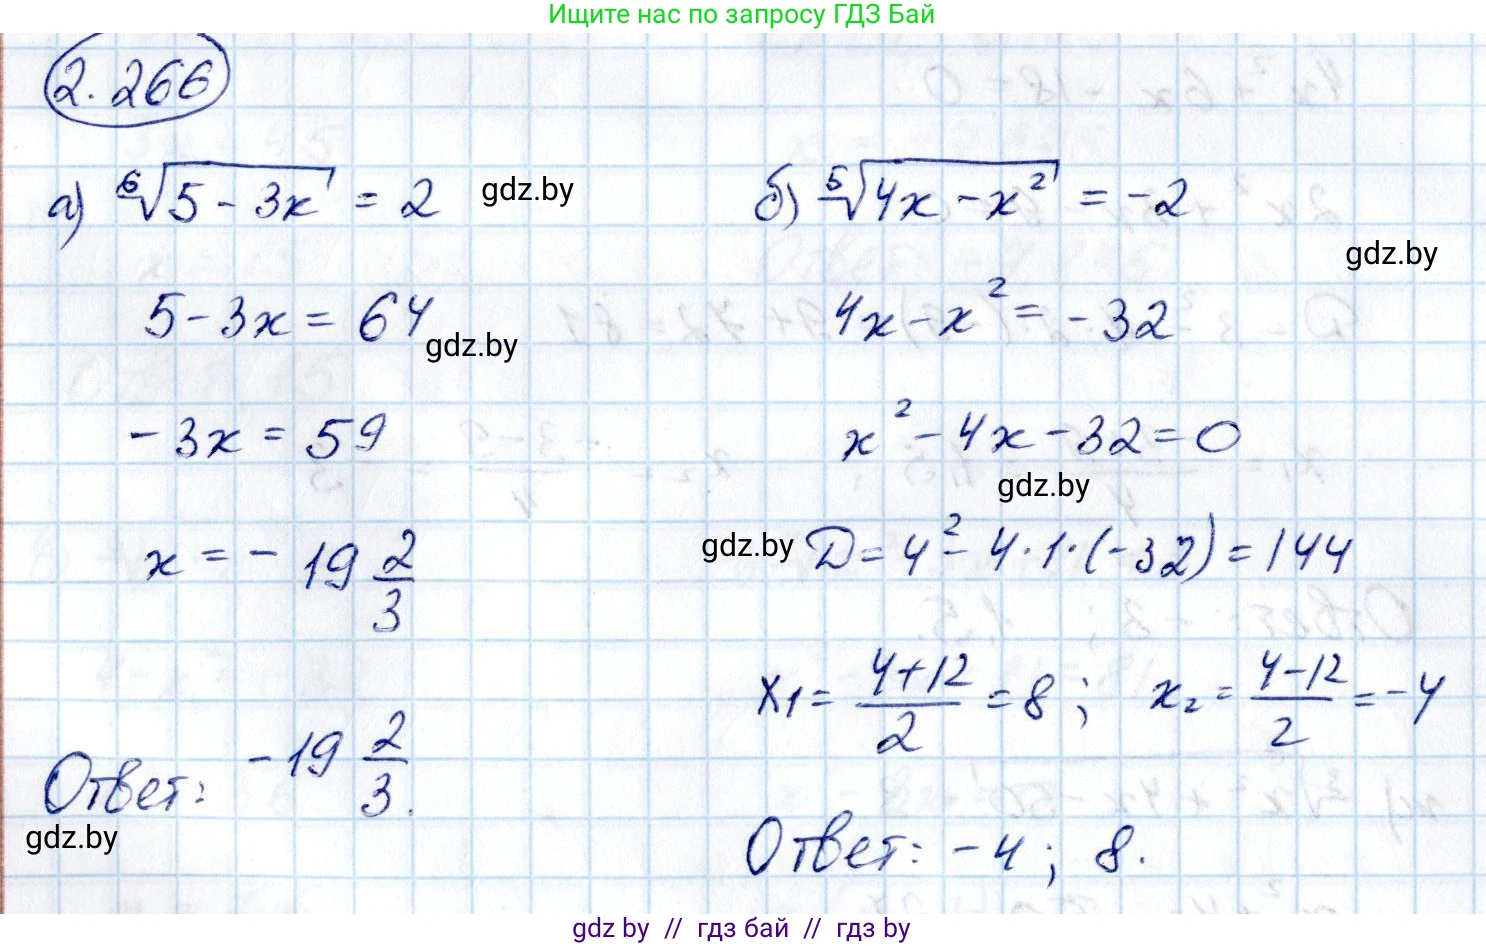 Ищите нас по запросу ГДЗ Бай
2.266
а) ⁶√(5 - 3x) = 2
gdz.by
5 - 3x = 64
gdz.by
- 3x = 59
x = - 19 2/3
Ответ: -19 2/3.
gdz.by
б) ⁵√(4x - x²) = -2
gdz.by
4x - x² = -32
x² - 4x - 32 = 0
gdz.by
gdz.by
D = 4² - 4·1·(-32) = 144
x₁ = (4+12)/2 = 8; x₂ = (4-12)/2 = -4
Ответ: -4; 8.
gdz.by // гдз бай // гдз by